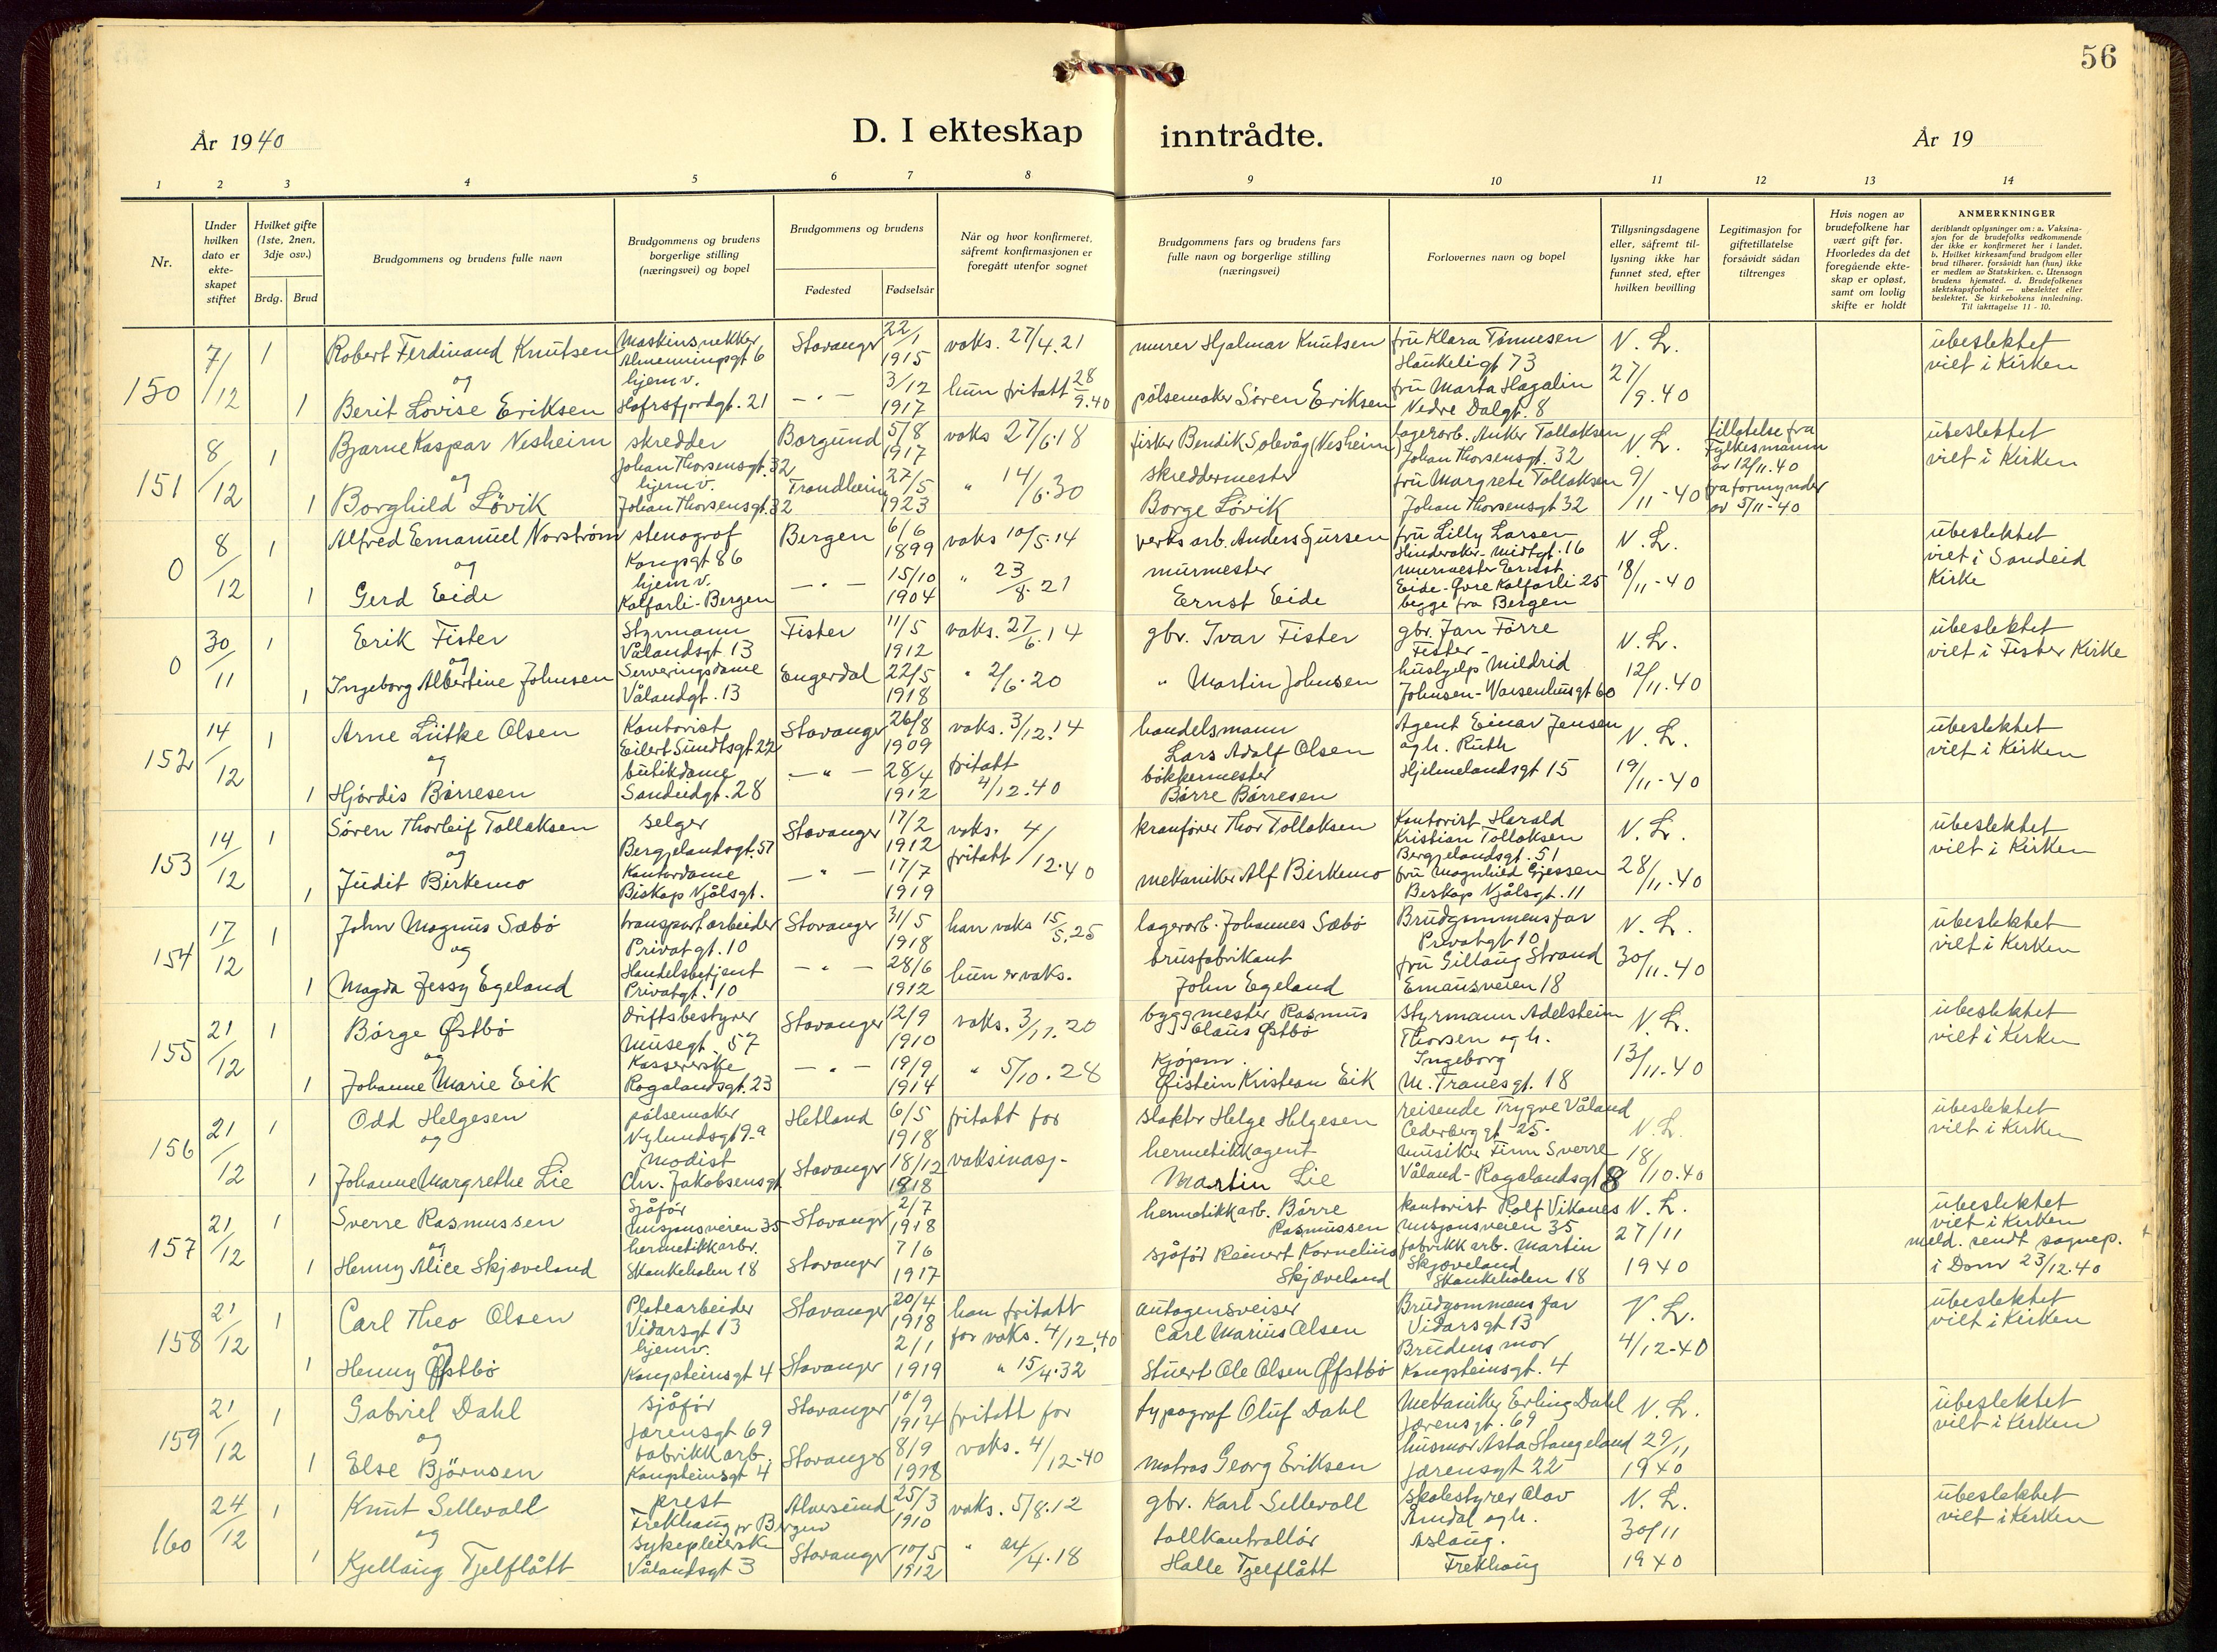 56
År 1940
D. I ekteskap inntrådte.
År 19
1 2 3 4 5 6 7 8 9 10 11 12 13 14
Nr.
Under hvilken dato er ekte-skapet stiftet
Hvilket gifte (1ste, 2nen, 3dje osv.)
Brdg. Brud
Brudgommens og brudens fulle navn
Brudgommens og brudens borgerlige stilling (næringsvei) og bopel
Brudgommens og brudens
Fødested Fødselsår
Når og hvor konfirmeret, såfremt konfirmasjonen er foregått utenfor sognet
Brudgommens fars og brudens fars fulle navn og borgerlige stilling (næringsvei)
Forlovernes navn og bopel
Tillysningsdagene eller, såfremt til-lysning ikke har funnet sted, efter hvilken bevilling
Legitimasjon for giftetillatelse forsåvidt sådan tiltrenges
Hvis nogen av brudefolkene har vært gift før. Hvorledes da det foregående ekte-skap er opløst, samt om lovlig skifte er holdt
ANMERKNINGER
deriblandt oplysninger om: a. Vaksina-sjon for de brudefolks vedkommende der ikke er konfirmeret her i landet. b. Hvilket kirkesamfund brudgom eller brud tilhører, forsåvidt han (hun) ikke er medlem av Statskirken. c. Utensogn brudens hjemsted. d. Brudefolkenes slektskapsforhold — ubeslektet eller beslektet. Se kirkebokens innledning. Til iakttagelse 11 - 10.
150 7/12 1 Robert Ferdinand Knutsen Maskinsnekker Almenningsgt 6 Stavanger 22/1 1915 vaks. 27/4.21 murer Hjalmar Knutsen fru Klara Tønnesen Haukeligt 73 N. L. ubeslektet viet i Kirken
og
1 Berit Lovise Eriksen hjemv. Hafrsfjordgt. 21 — " — 3/12 1917 hun fritatt 28/9.40 pölsemaker Sören Eriksen fru Marta Hagalin Nedre Dalgt. 8 27/9.40
151 8/12 1 Bjarne Kaspar Nesheim skredder Johan Thorsensgt. 32 Borgund 5/8 1917 vaks 27/6.18 fisker Bendik Solevåg (Nesheim) lagerarb. Anker Tollaksen Johan Thorsensgt. 32 N. L. tillatelse fra Fylkesmann av 12/11.40 ubeslektet viet i Kirken
og
1 Borghild Lövik hjemv. Johan Thorsensgt. 32 Trondheim 27/5 1923 " 14/6.30 skreddermester Borge Lövik fru Margrete Tollaksen Johan Thorsensgt 32 9/11-40 fra formynder av 5/11-40
0 8/12 1 Alfred Emanuel Norström stenograf Kongsgt 86 Bergen 6/6 1899 vaks 10/5.14 verksarb. Anders fru Lilly Larsen Hinderaker-Midtgt. 16 N. L. ubeslektet viet i Sandeid Kirke
og
1 Gerd Eide hjemv. Kalfarli-Bergen — " — 15/10 1904 " 23/8.21 murmester Ernst Eide murmester Ernst Eide-Øvre Kalfarli 25 begge fra Bergen 18/11-40
0 30/11 1 Erik Fister Styrmann Vålandsgt. 13 Fister 11/5 1912 vaks. 27/6.14 gbr. Ivar Fister gbr. Jan Førre Fister- N. L. ubeslektet viet i Fister Kirke
og
1 Ingeborg Albertine Johnsen Serveringsdame Vålandgt. 13 Engerdal 22/5 1918 " 2/6.20 " Martin Johnsen hushjelp-Mildrid Johnsen-Waisenhusgt 60 12/11.40
152 14/12 1 Arne Lütke Olsen Kontorist Eilert Sundtsgt 22 Stavanger 26/8 1909 vaks. 3/12.14 handelsmann Lars Adolf Olsen Agent Einar Jensen og h. Ruth N. L. ubeslektet viet i Kirken
og
1 Hjördis Börresen butikdame Sandeidgt. 28 — " — 28/4 1912 fritatt 4/12.40 bökkermester Börre Börresen Hjelmelandsgt 15 19/11-40
153 14/12 1 Sören Thorleif Tollaksen selger Bergjelandsgt. 51 Stavanger 17/2 1912 vaks. fritatt 4/12.40 kranförer Thor Tollaksen Kontorist Harald Kristian Tollaksen Bergjelandsgt. 51 N. L. ubeslektet viet i Kirken
og
1 Judit Birkemo Kontordame Biskop Njålsgt. — " — 17/7 1919 mekaniker Alf Birkemo fru Magnhild Gjessen Beskop Njålsgt. 11 28/11.40
154 17/12 1 John Magnus Sæbö transportarbeider Privatgt. 10 Stavanger 31/5 1918 han vaks 15/5.25 lagerarb. Johannes Sæbö Brudgommens far Privatgt 10 N. L. ubeslektet viet i Kirken
og
1 Magda Jessy Egeland Handelsbetjent Privatgt. 10 — " — 28/6 1912 hun er vaks. brusfabrikant John Egeland fru Gillaug Strand Emausveien 18 30/11.40
155 21/12 1 Börge Østbö driftsbestyrer Musegt. 57 Stavanger 12/9 1910 vaks. 3/11.20 byggmester Rasmus Claus Østbö styrmann Adelsheim Thorsen og h. Ingeborg N. L. ubeslektet viet i Kirken
og
1 Johanne Marie Eik Kassererske Rogalandsgt. 23 — " — 19/9 1914 " 5/10.28 Kjöpm. Øistein Kristian Eik M. Tranesgt. 18 13/11-40
156 21/12 1 Odd Helgesen pölsemaker Nylundsgt 9-a Hetland 6/5 1918 fritatt for slakter Helge Helgesen reisende Trygve Våland Cederberggt 25- N. L. ubeslektet viet i Kirken
og
1 Johanne Margrethe Lie modist Chr. Jakobsensgt Stavanger 18/12 1918 vaksinasj- hermetikkagent Martin Lie musiker Finn Sverre Våland-Rogalandsgt 8 18/10.40
157 21/12 1 Sverre Rasmussen Sjåför Misjonsveien 35 Stavanger 2/7 1918 hermetikkarb. Börre Rasmussen kontorist Rolf Vikanes Misjonsveien 35 N. L. ubeslektet viet i Kirken
og
1 Henny Alice Skjæveland hermetikkarbr. Skankeholen 18 Stavanger 7/6 1917 sjåför Reinert Kornelius Skjæveland fabrikkarb. Martin Skjæveland Skankeholen 18 27/11 1940 meld. sendt sognep. i Dom 23/12.40
158 21/12 1 Carl Theo Olsen Platearbeider Vidarsgt 13 Stavanger 20/4 1918 han fritatt for vaks. 4/12.40 autogensveiser Carl Marius Olsen Brudgommens far Vidarsgt 13 N. L. ubeslektet viet i Kirken
og
1 Henny Øfstbö hjemv. Kongsteinsgt 4 Stavanger 2/1 1919 " 15/4.32 Stuert Ole Olsen Øfstbö Brudens mor Kongsteinsgt. 4 4/12-40
159 21/12 1 Gabriel Dahl sjåför Jærensgt 69 Stavanger 10/9 1914 fritatt for typograf Oluf Dahl Mekaniker Erling Dahl Jærensgt. 69 N. L. ubeslektet viet i Kirken
og
1 Else Björnsen fabrikkarb. Kongsteinsgt 4 Stavanger 8/9 1918 vaks. 4/12-40 matros Georg Eriksen husmor Asta Stangeland Jærensgt 22 29/11 1940
160 24/12 1 Knut Sellevoll prest Frekhaug pr Bergen Alversund 25/3 1910 vaks. 5/8.12 gbr. Karl Sellevoll skolestyrer Olav Amdal og h. N. L. ubeslektet viet i Kirken
og
1 Kjellaug Tjelflått sykepleierske Vålandsgt 3 Stavanger 10/5 1912 " 24/4.18 tollkontrollör Halle Tjelflått Aslaug. Frekhaug 30/11 1940